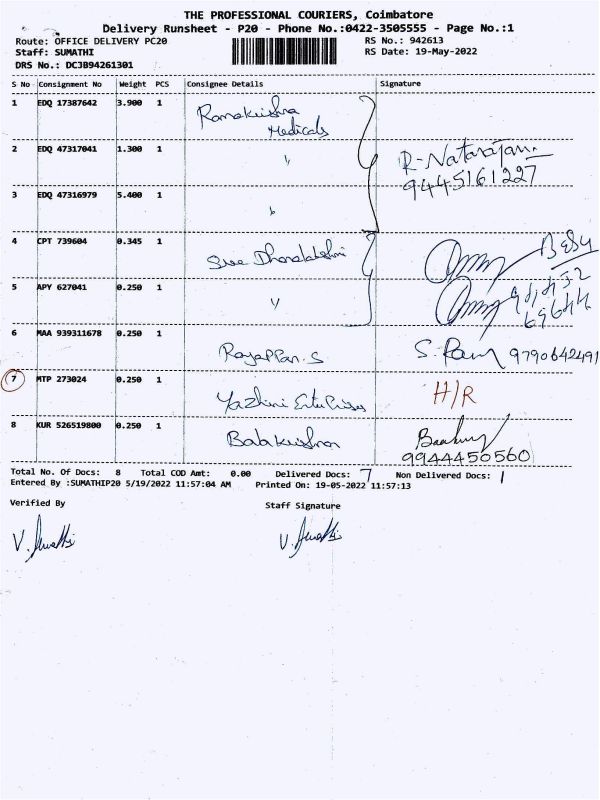 THE PROFESSIONAL COURIERS, Coimbatore
Delivery Runsheet - P20 - Phone No.:0422-3505555 - Page No.:1
Route: OFFICE DELIVERY PC20
RS No.: 942613
Staff: SUMATHI
RS Date: 19-May-2022
DRS No.: DCJB94261301
S No Consignment No Weight PCS Consignee Details Signature
1 EDQ 17387642 3.900 1 Ramakrishna
Medicals
2 EDQ 47317041 1.300 1 " R-Natarajan
9445161227
3 EDQ 47316979 5.400 1 "
4 CPT 739604 0.345 1 Sree Dhanalakshmi
5 APY 627041 0.250 1 "
6 MAA 939311678 0.250 1 Rajappan.S S. Ram 9790642491
7 MTP 273024 0.250 1 Yazhini Enterprises H/R
8 KUR 526519800 0.250 1 Balakrishnan
9944450560
Total No. Of Docs: 8 Total COD Amt: 0.00 Delivered Docs: 7 Non Delivered Docs: 1
Entered By :SUMATHIP20 5/19/2022 11:57:04 AM Printed On: 19-05-2022 11:57:13
Verified By Staff Signature
V. Sumathi V. Sumathi